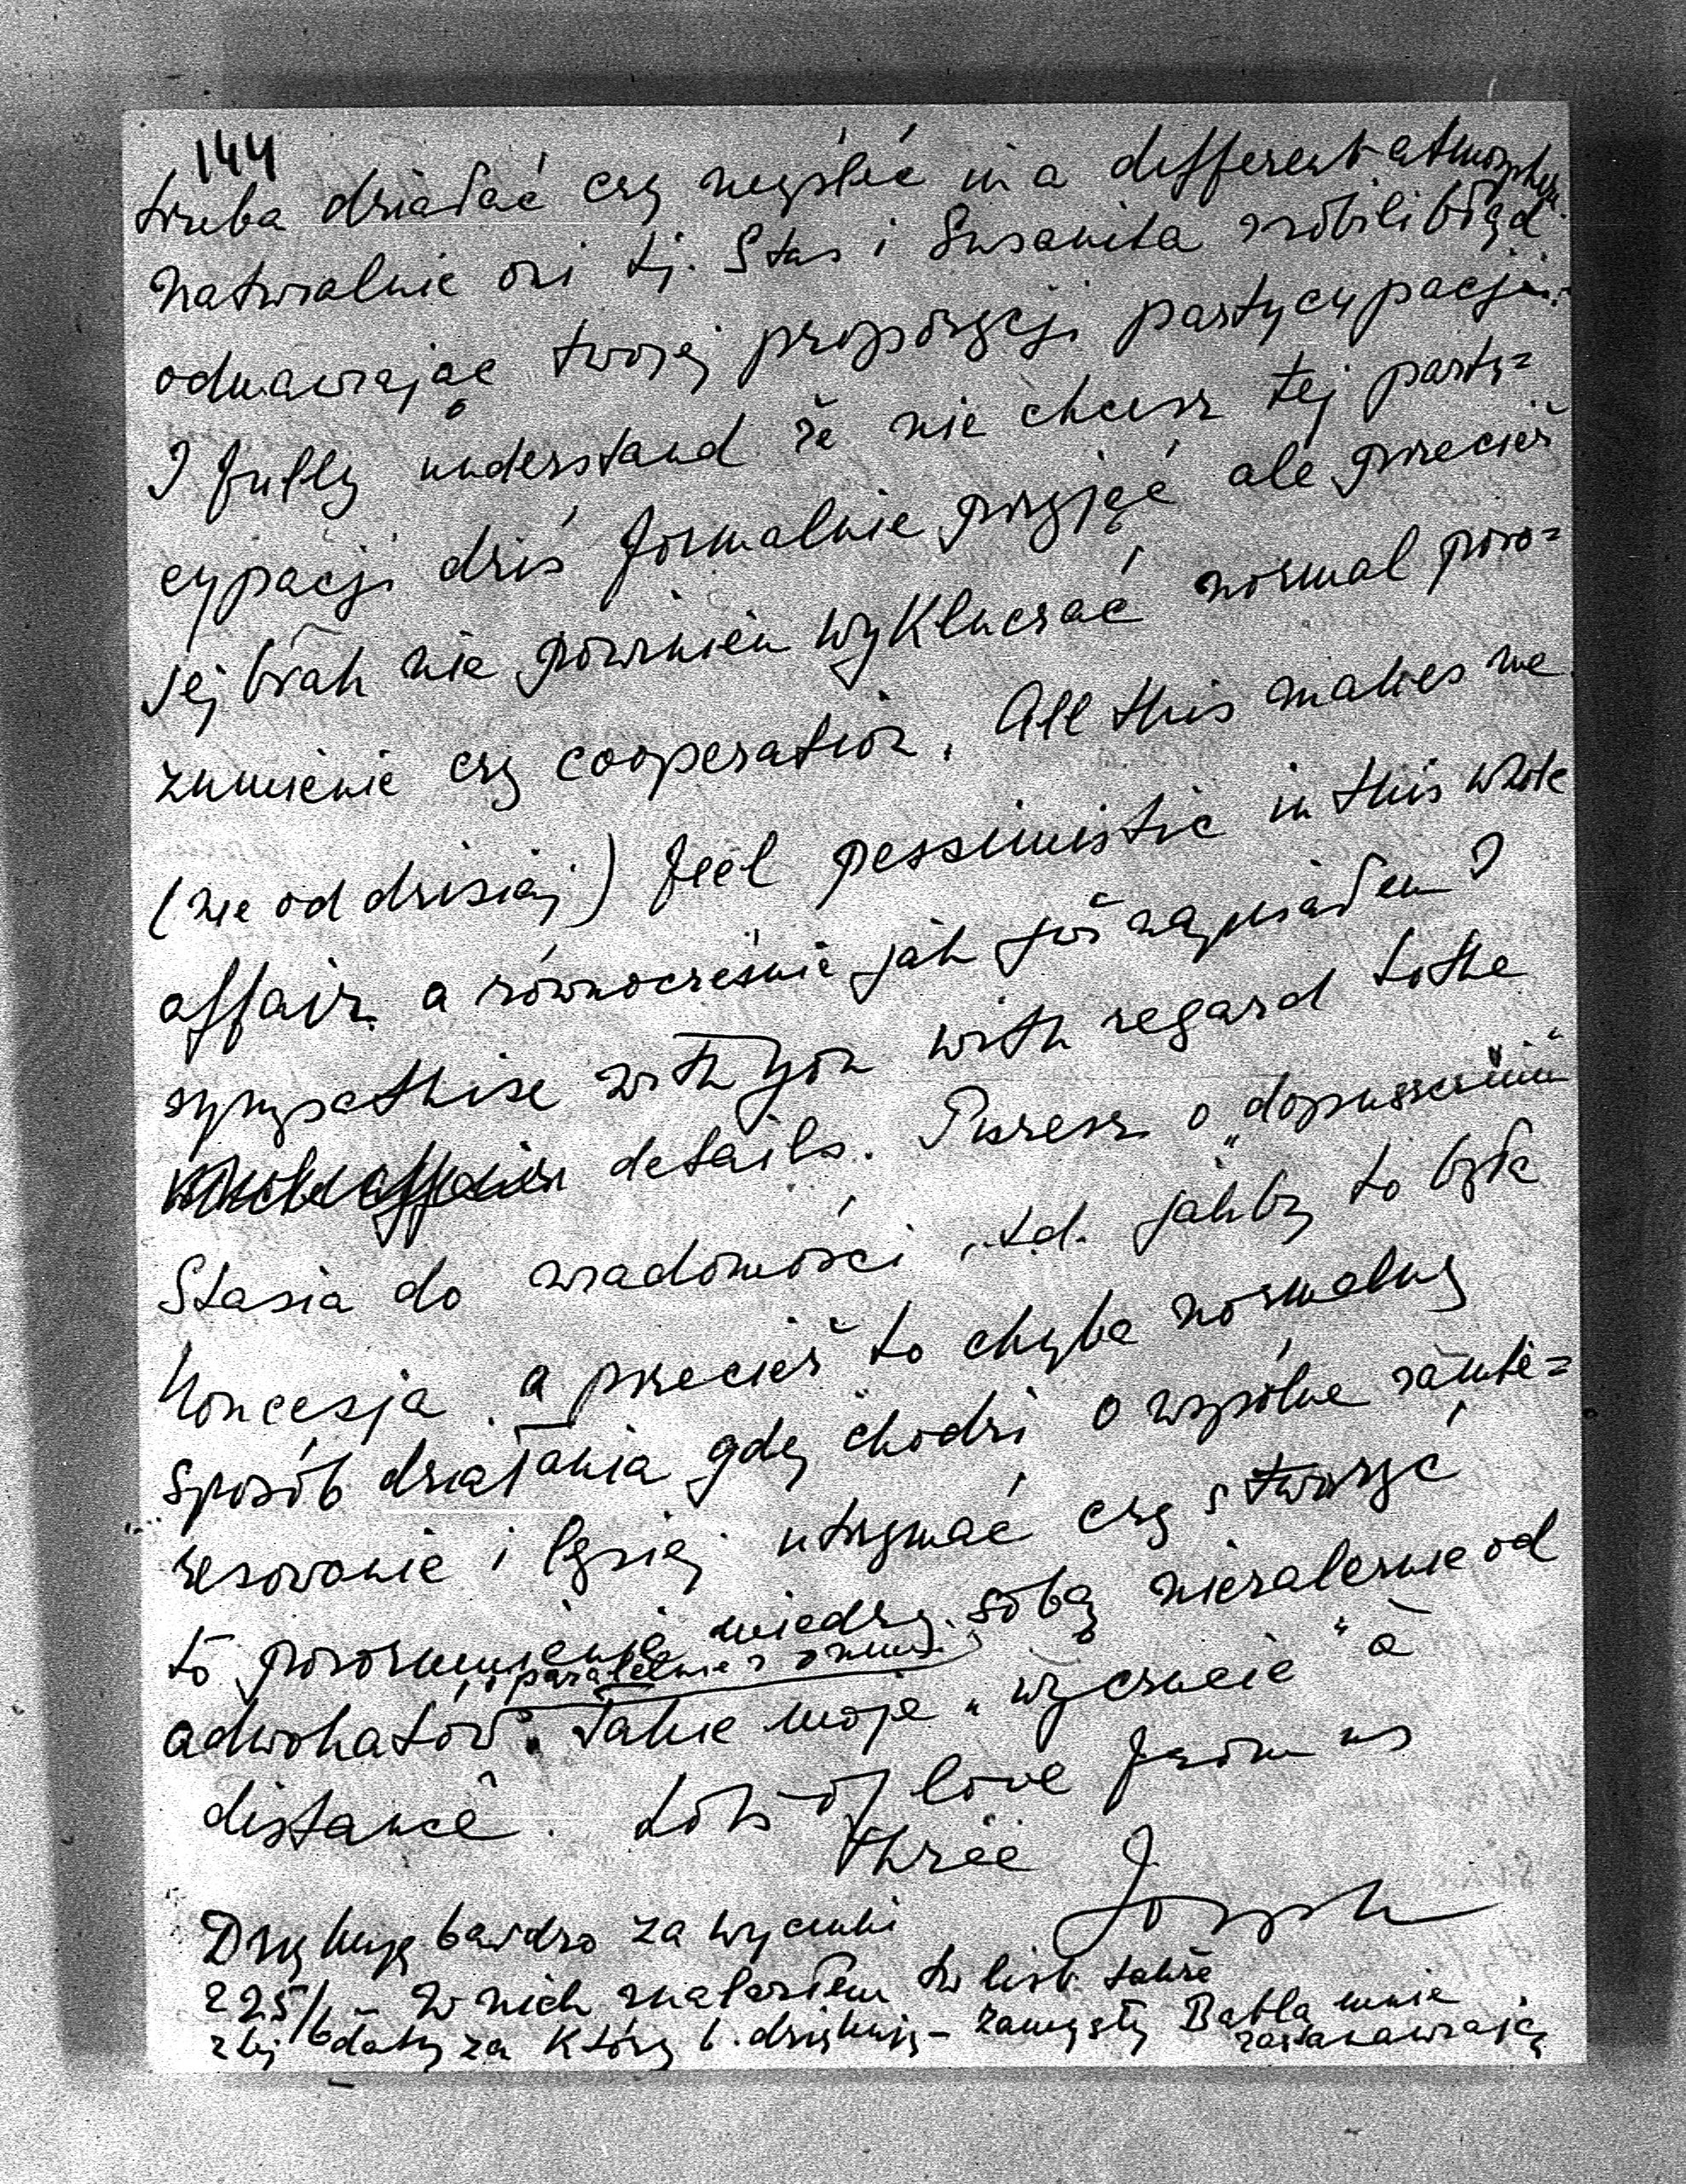 144
trzeba działać czy myśleć in a different atmosphere.
Naturalnie oni tj. Staś i Susanita zrobili błąd
odmawiając twojej propozycji partycypacji.
I fully understand że nie chcesz tej party=
cypacji dziś formalnie przyjąć ale przecież
jej brak nie powinien wykluczać normal poro=
zumienie czy cooperation. All this makes me
(nie od dzisiaj) feel pessimistic in this whole
affair a równocześnie jak już napisałem I
sympathise with you with regard to the
details. Piszesz o „dopuszczeniu"
Stasia do wiadomości itd. jakby to była
koncesja a przecież to chyba normalny
sposób działania gdy chodzi o wspólne zainte=
resowanie i lepiej utrzymać czy stworzyć
to porozumienie między sobą niezależnie od
i paralelnie z nimi
adwokatów. Takie moje „wyczucie" à
distance. Lots of love from us
three Joseph
Dziękuję bardzo za wycinki
z 25/6 – W nich znalazłem tw list także
z tej daty za który b. dziękuję – Zamysły Babla mnie
zastanawiają